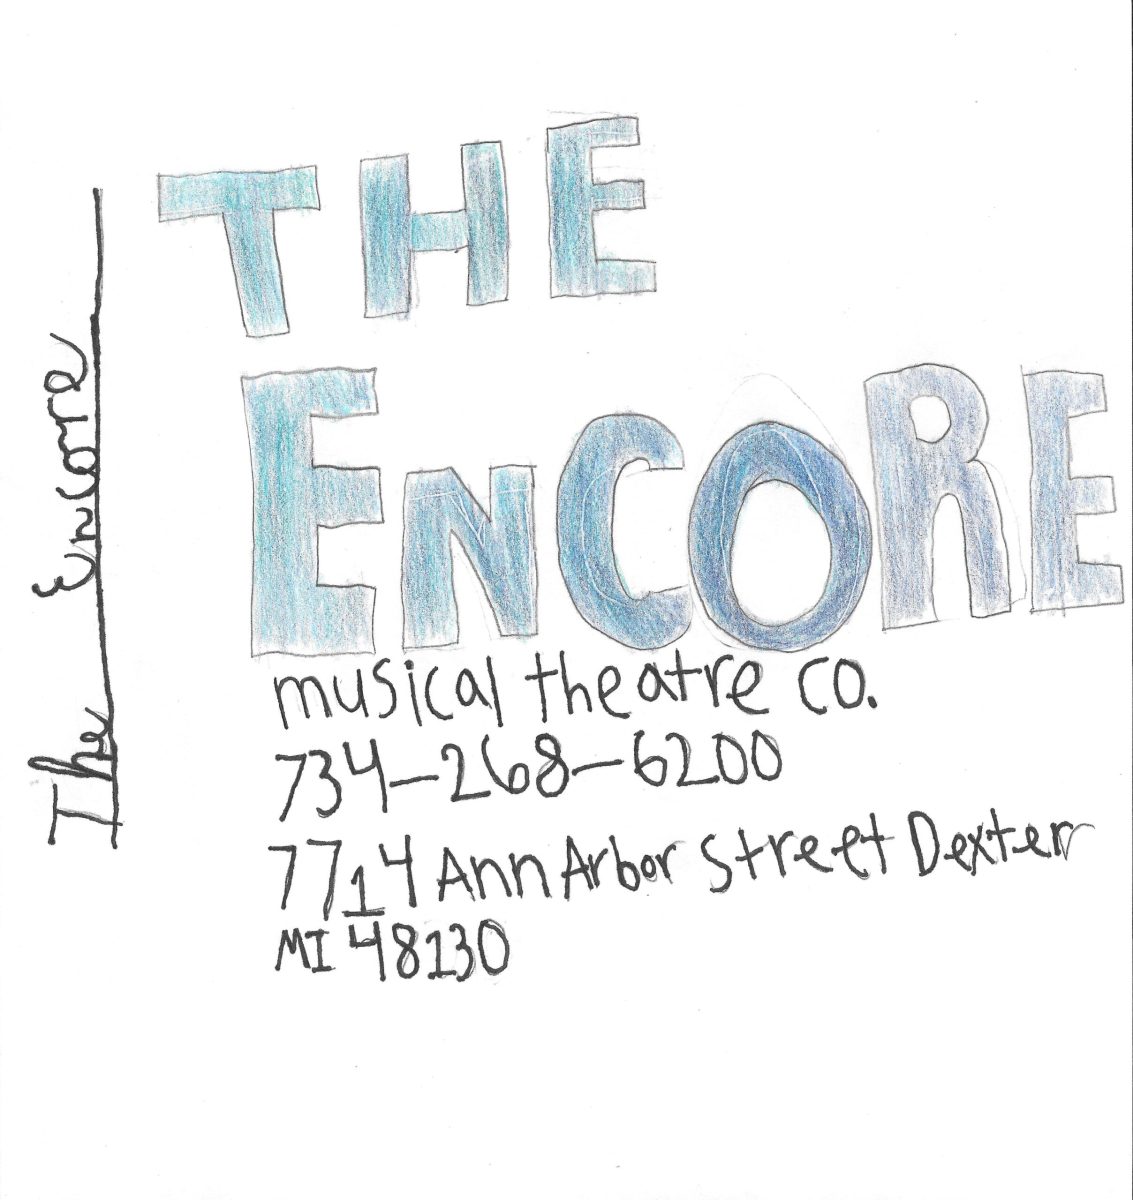 The Encore
THE
ENCORE
musical theatre co.
734-268-6200
7714 Ann Arbor Street Dexter
MI 48130